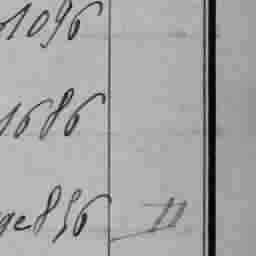 1096
1686
ge 856 II